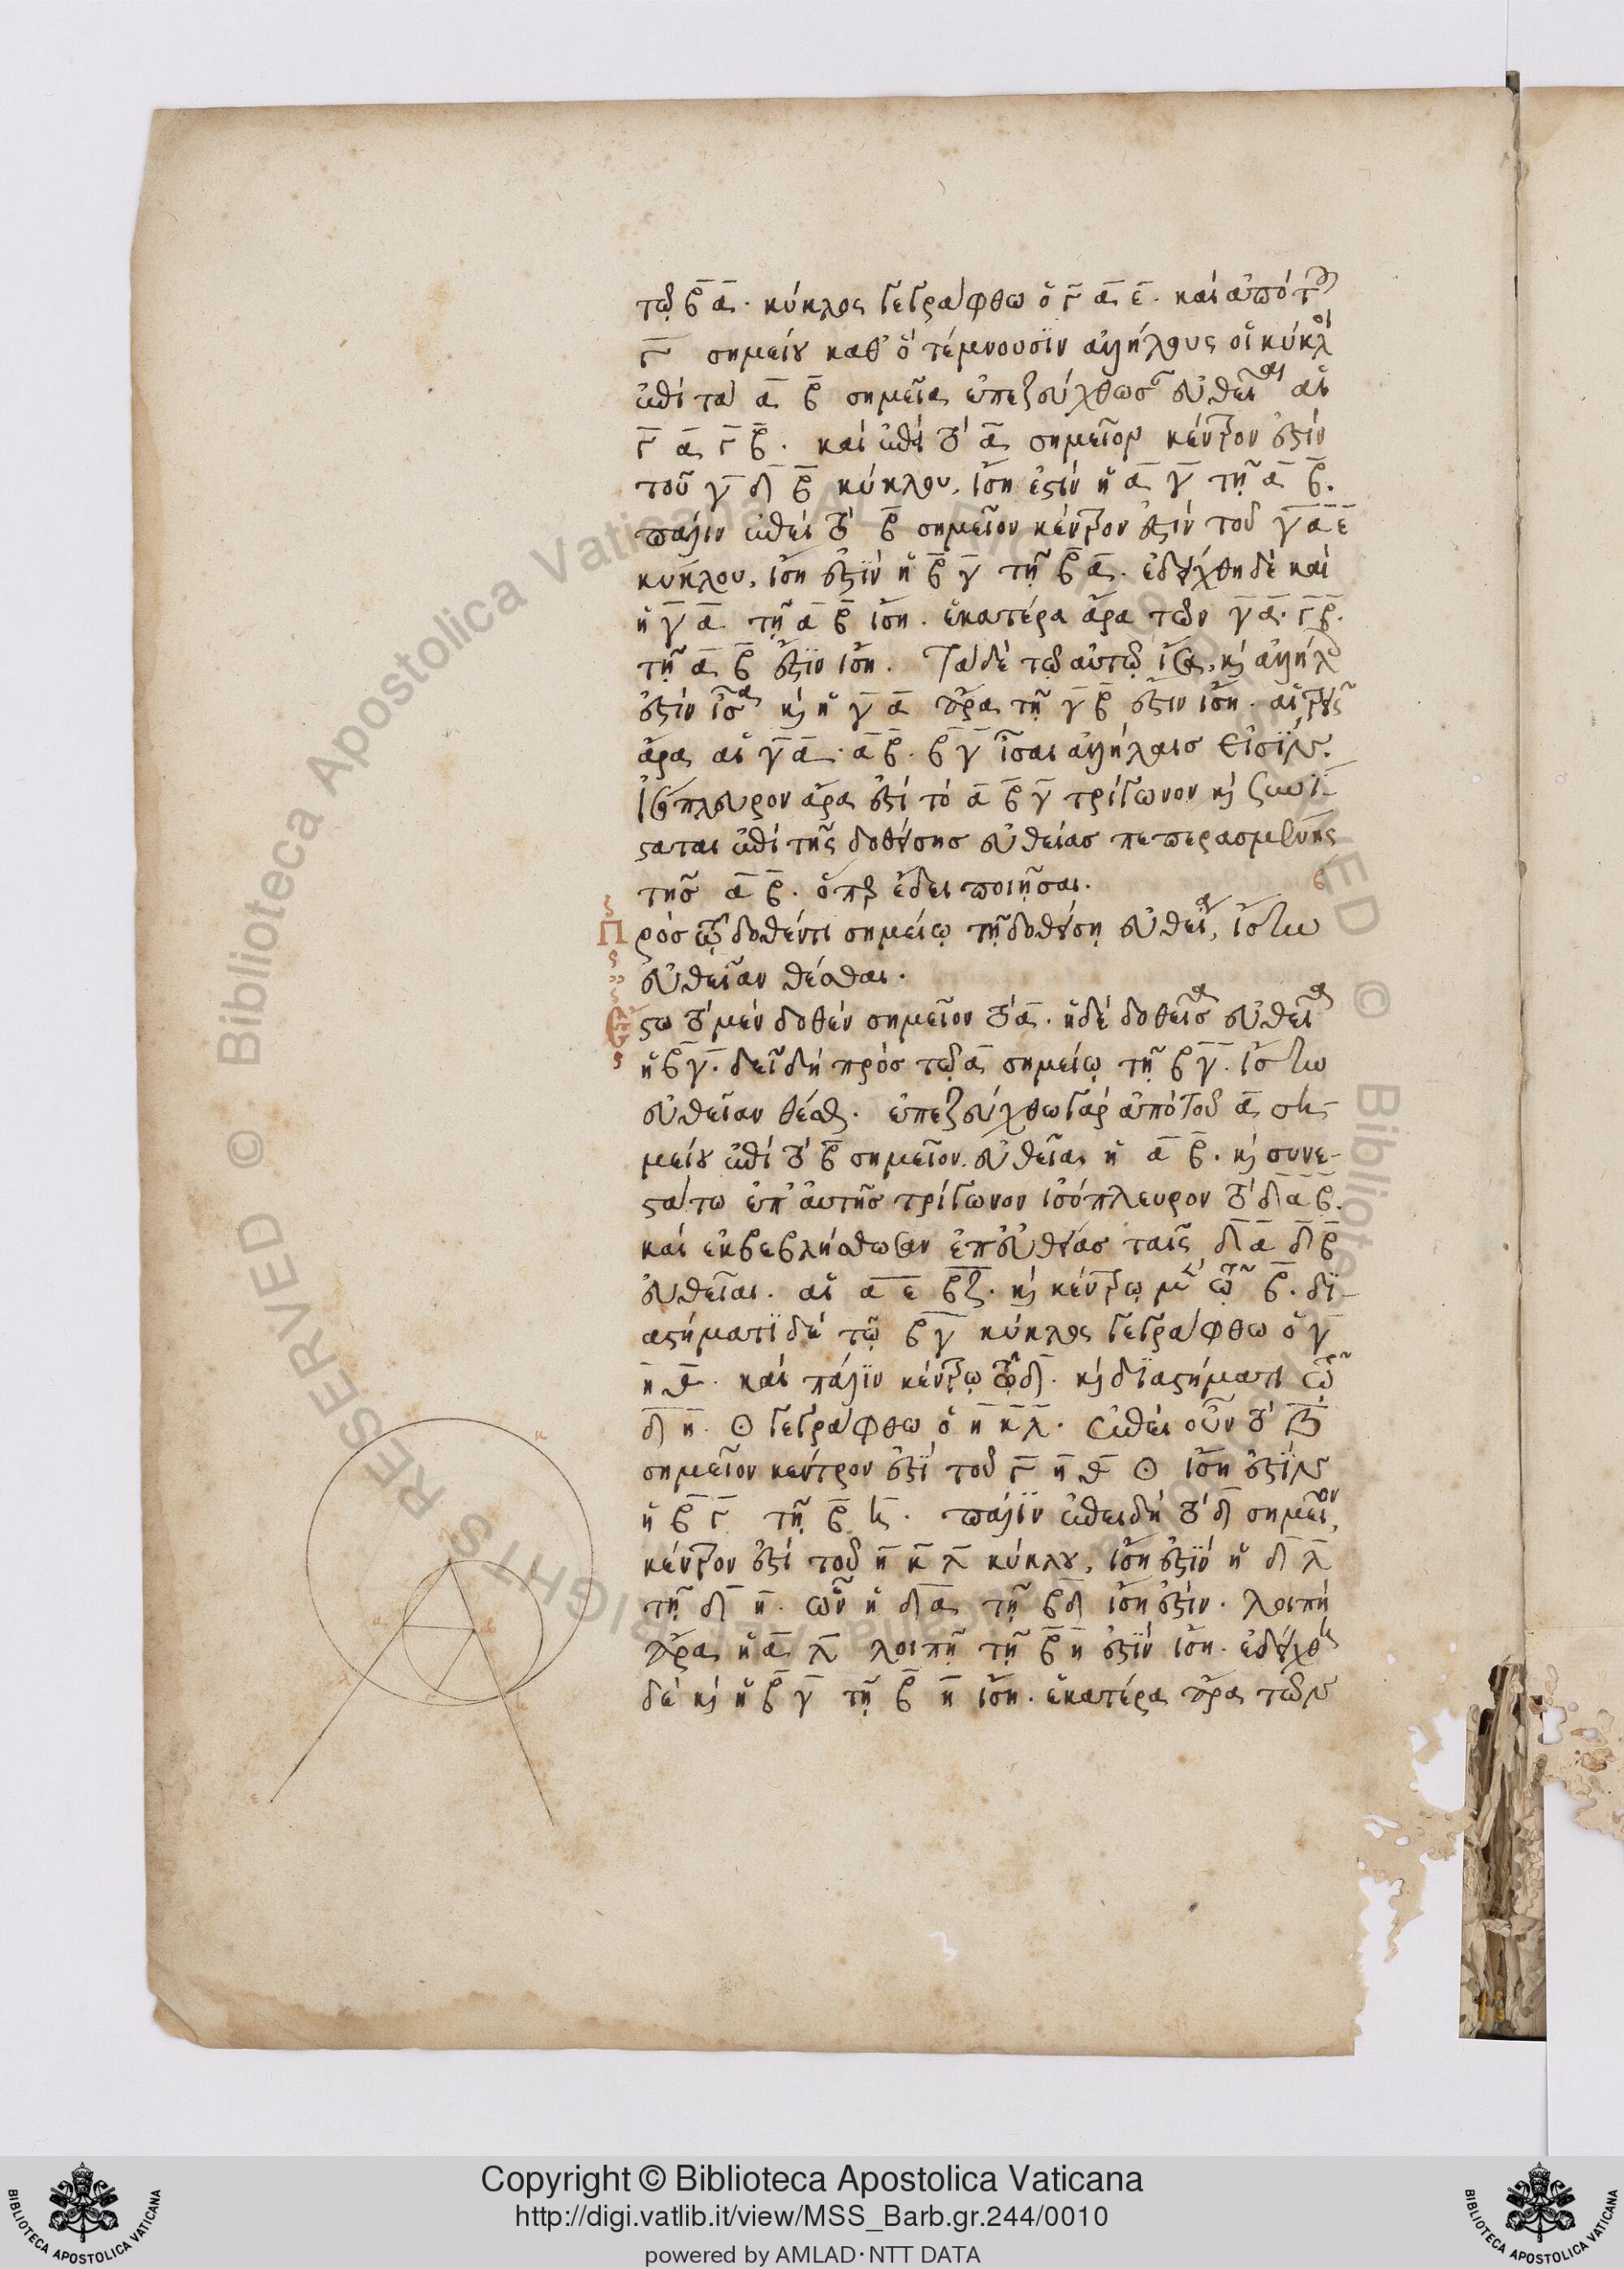 τῶ β α. κύκλος γεγράφθω ὁ γ α ε. καὶ ἀπὸ τοῦ
γ σημείου καθ' ὃ τέμνουσϊν ἀλλήλους οἱ κύκλοι
ἐπὶ τὰ α β σημεῖα ἐπεζεύχθωσαν εὐθεῖαι αἱ
γ α γ β. καὶ ἐπεὶ τὸ α σημεῖον κέντρον ἐστὶν
τοῦ γ δ β κύκλου, ἴση ἐστὶν ἡ α γ τῆ α β.
πάλιν ἐπεὶ τὸ β σημεῖον κέντρον ἐστὶν τοῦ γ α ε
κύκλου, ἴση ἐστῒν ἡ β γ τῆ β α. ἐδείχθη δὲ καὶ
ἡ γ α τῆ α β ἴση. ἑκατέρα ἄρα τῶν γ α. γ β.
τῆ α β ἐστῒν ἴση. Τὰ δὲ τῶ αὐτῶ ἴσα, κὶ ἀλλήλοις
ἐστὶν ἴσα κὶ ἡ γ α ἄρα τῆ γ β ἐστιν ἴση. αἱ τρεῖς
ἄρα αἱ γ α. α β. β γ ἴσαι ἀλλήλαισ εἰσῒν.
ἰσόπλευρον ἄρα ἐστὶ τὸ α β γ τρίγωνον κὶ συνί-
σταται ἐπὶ τῆς δοθείσησ εὐθείασ πεπερασμένης
τῆσ α β. ὅπερ ἔδει ποιῆσαι. β
Πρὸσ τῶ δοθέντι σημείω τῆ δοθείση εὐθεία, ἴσην
εὐθεῖαν θέσθαι.
Ἔστω τὸ μὲν δοθὲν σημεῖον τὸ α. ἡ δὲ δοθεῖσα εὐθεῖα
ἡ β γ. δεῖ δὴ πρὸσ τῶ α σημείω τῆ β γ. ἴσην
εὐθεῖαν θέσθαι. ἐπεζεύχθω γὰρ ἀπὸ τοῦ α ση-
μείου ἐπὶ τὸ β σημεῖον. εὐθεῖα ἡ α β. κὶ συνε-
στάτω ἐπ' αὐτῆσ τρίγωνον ἰσόπλευρον τὸ δ α β.
καὶ ἐκβεβλήσθωσαν ἐπ' εὐθείασ ταῖς δ α δ β
εὐθεῖαι. αἱ α ε β ζ. κὶ κέντρω μὲν τῶ β. δϊ-
αστήματϊ δὲ τῶ β γ κύκλος γεγράφθω ὁ γ
η θ. καὶ πάλϊν κέντρω τῶ δ. κὶ δϊαστήματι τῶ
δ η. ʘ γεγράφθω ὁ η κ λ. ἐπεὶ οὖν τὸ β
σημεῖον κέντρον ἐστῒ τοῦ γ η θ ʘ ἴση ἐστῒν
ἡ β γ τῆ β η. πάλϊν ἐπειδὴ τὸ δ σημεῖον,
κέντρον ἐστὶ τοῦ η κ λ κύκλου, ἴση ἐστῒν ἡ δ λ
τῆ δ η. ὧν ἡ δ α τῆ β δ ἴση ἐστὶν. λοιπὴ
ἄρα ἡ α λ λοιπῆ τῆ β η ἐστῒν ἴση. ἐδείχθη
δὲ κὶ ἡ β γ τῆ β η ἴση. ἑκατέρα ἄρα τῶν
Copyright © Biblioteca Apostolica Vaticana
http://digi.vatlib.it/view/MSS_Barb.gr.244/0010
powered by AMLAD·NTT DATA